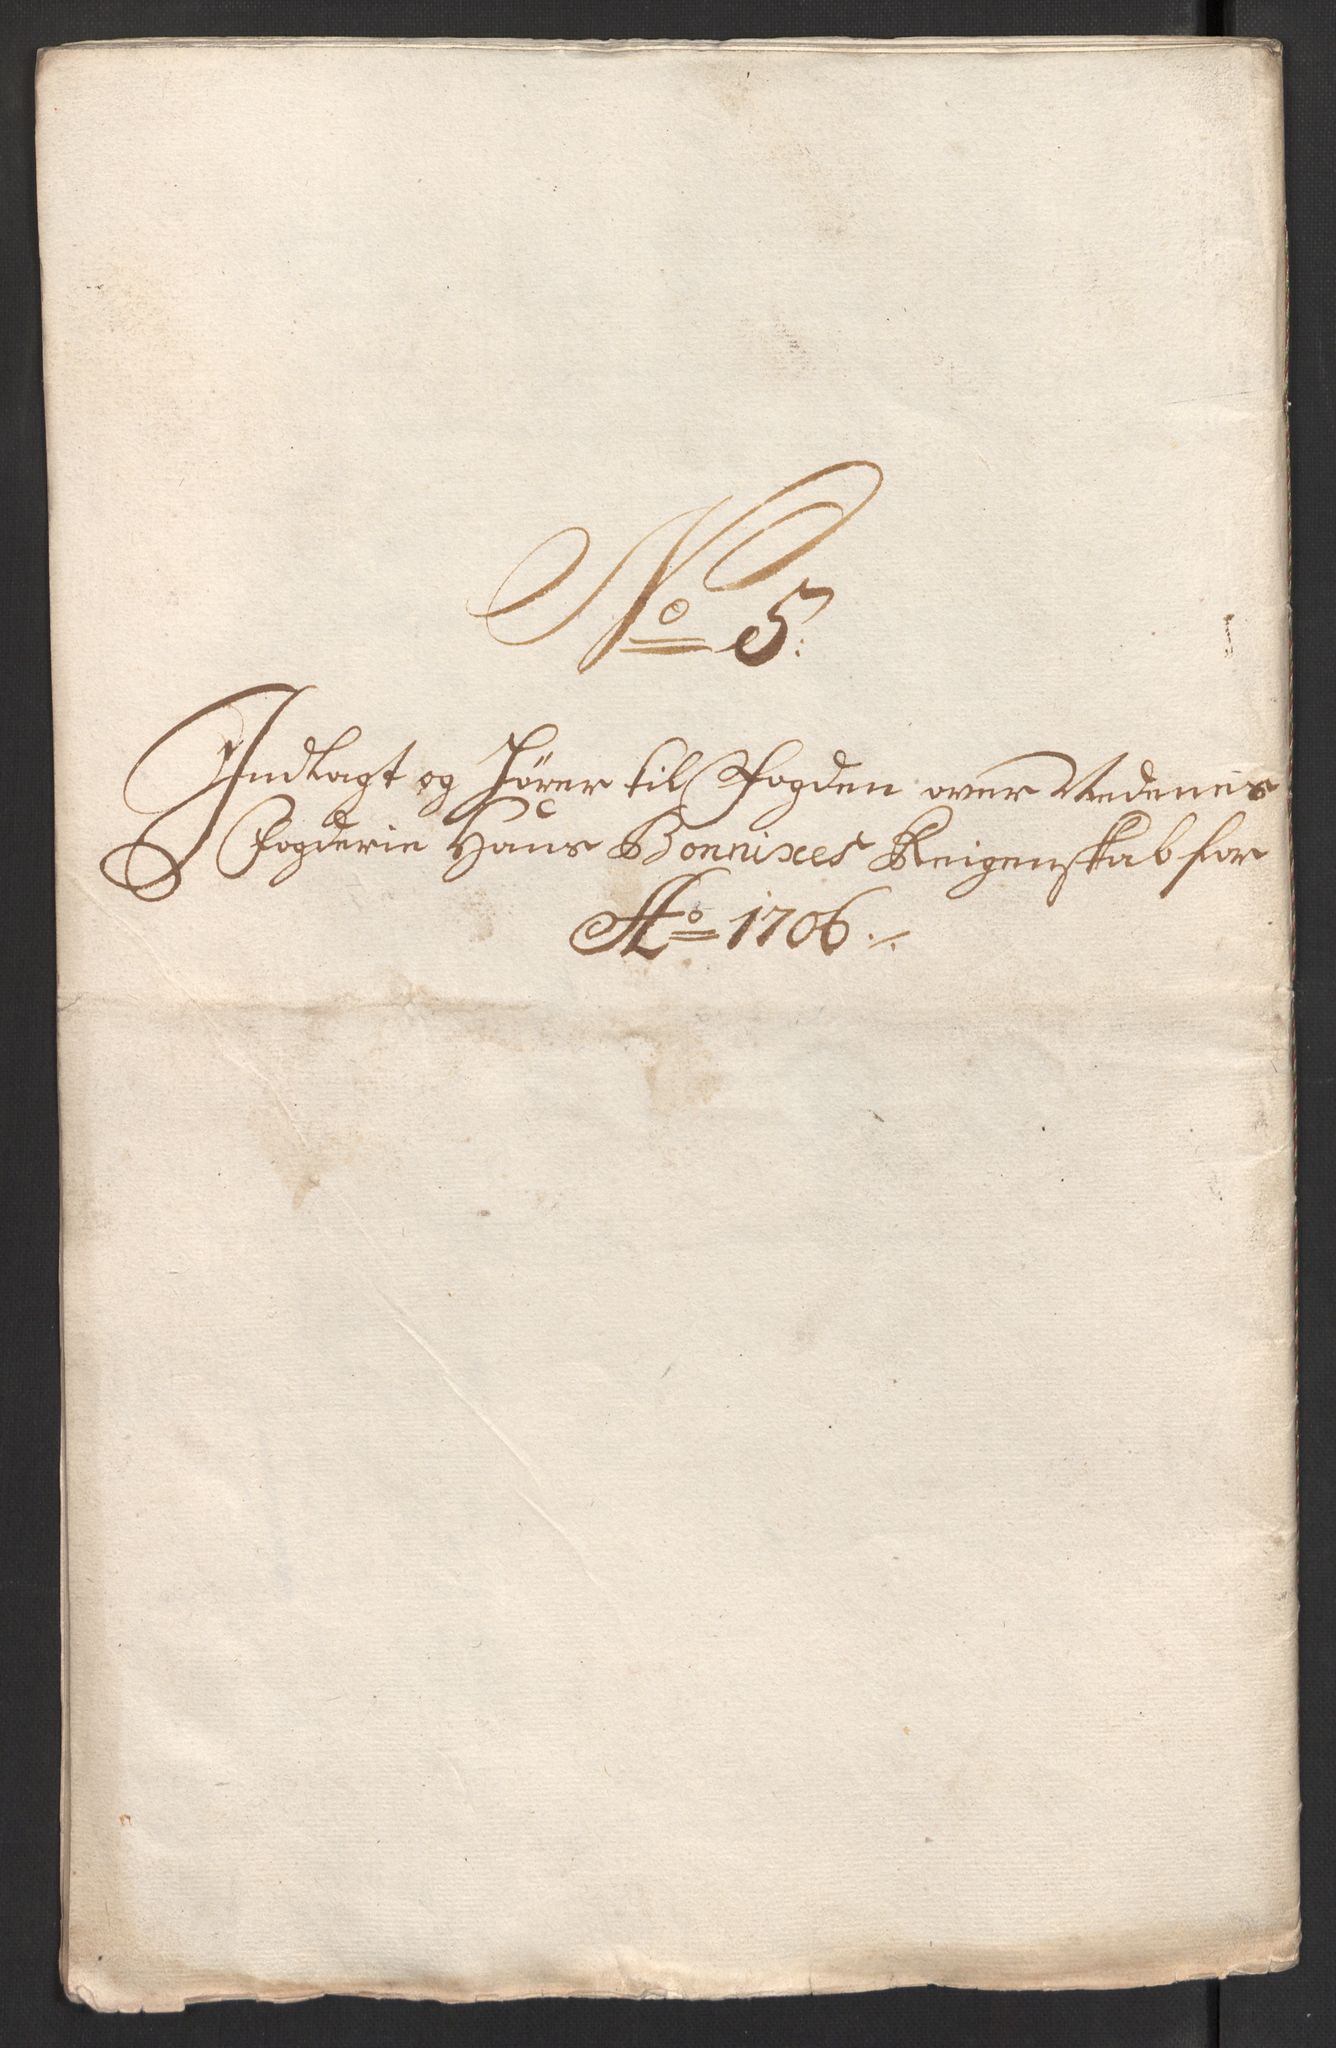 No 5:
Indlagt og hörer til Fogden over Nedenes
Fogderie Hans Bonnixes Reigenskab for
Ao 1706.